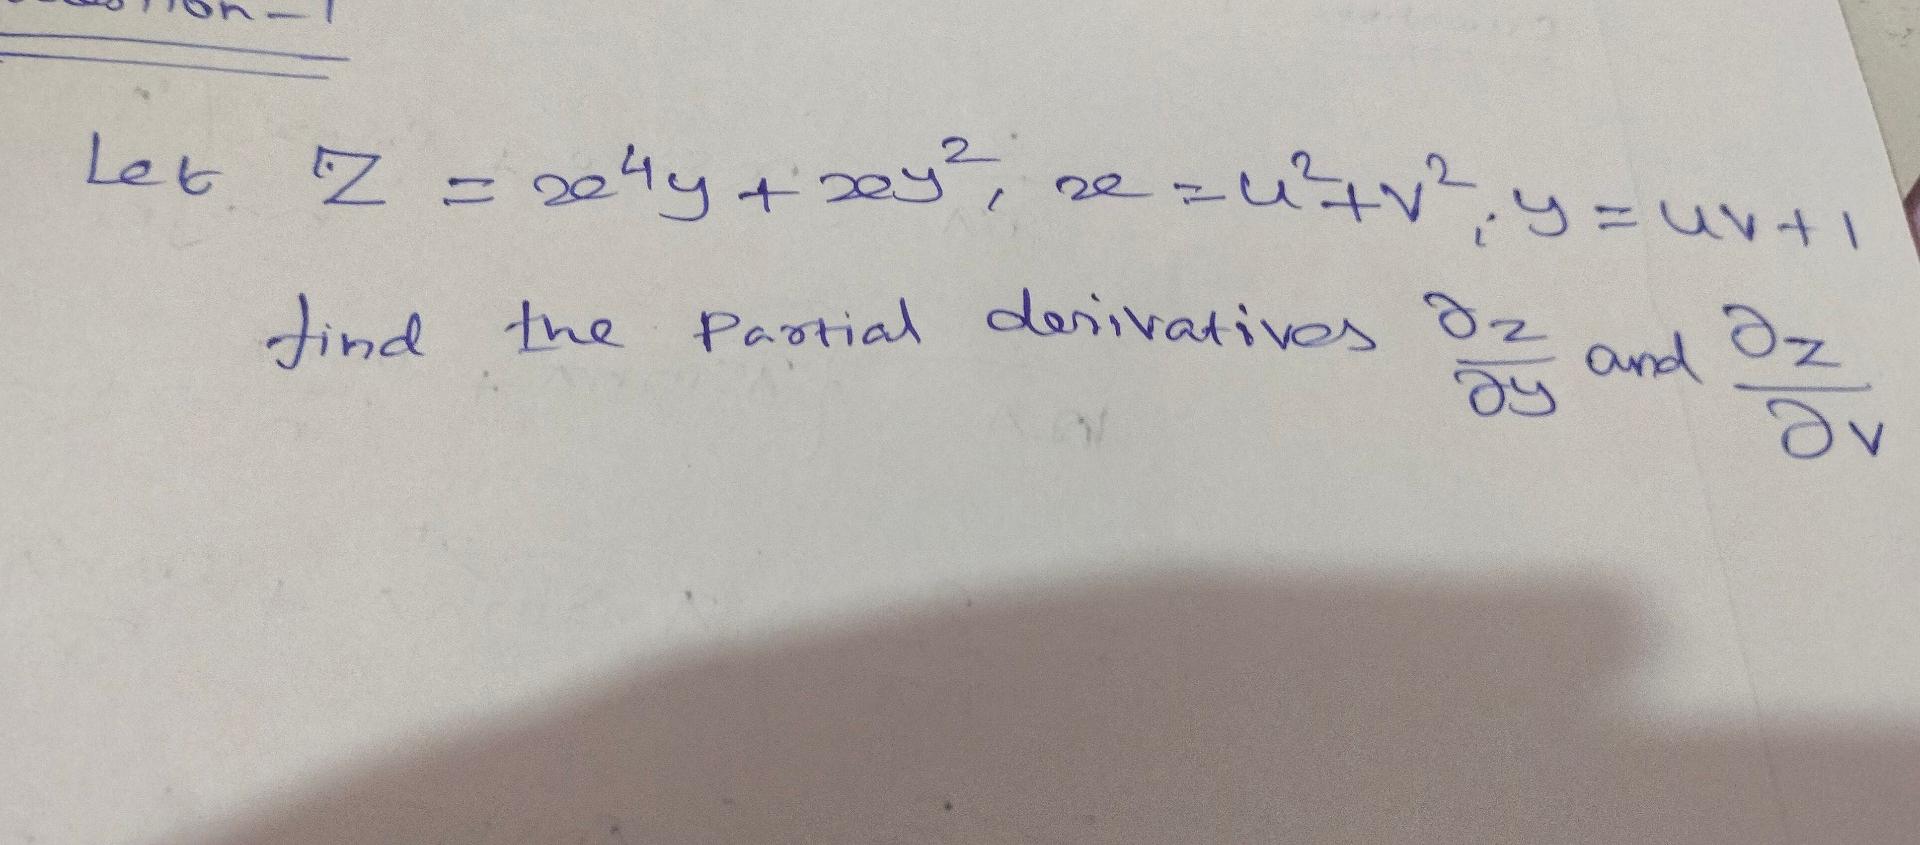 Let Z = x⁴y + xy², x = u²+v², y = uv+1
find the Partial derivatives ∂z/∂y and ∂z/∂v